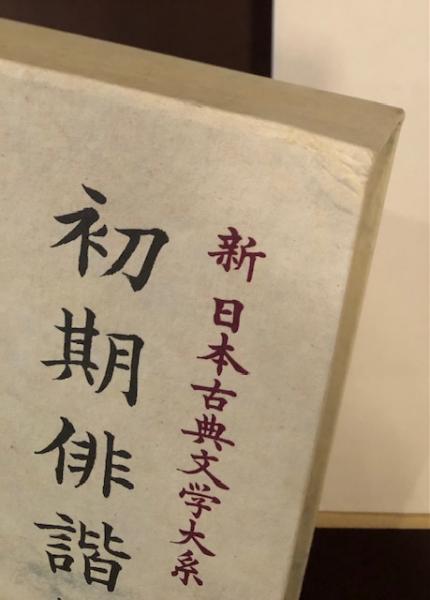 新 日本古典文学大系
初期俳諧